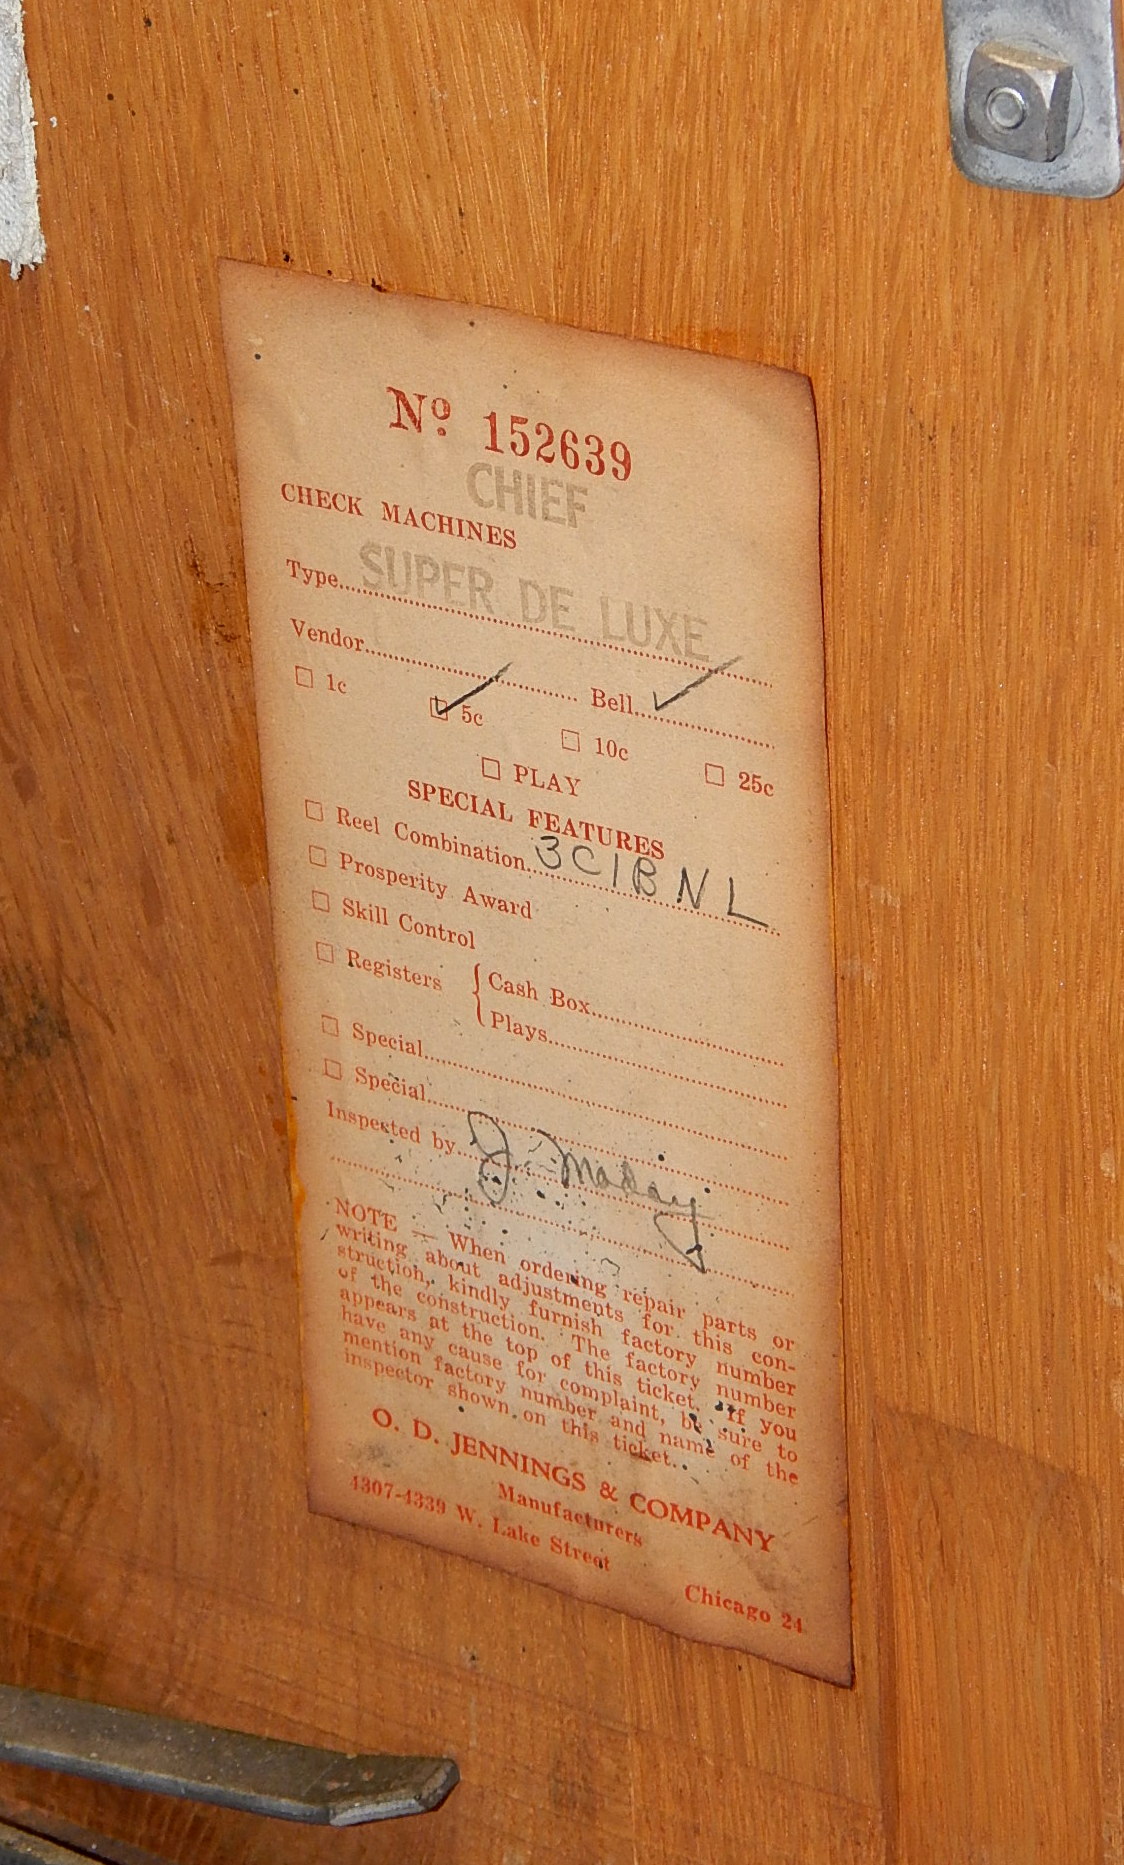 Nº 152639
CHIEF
CHECK MACHINES
SUPER DE LUXE
Type
Vendor Bell ✓
☐ 1c ☑ 5c ☐ 10c ☐ 25c
☐ PLAY
SPECIAL FEATURES
☐ Reel Combination 3C1BNL
☐ Prosperity Award
☐ Skill Control
☐ Registers { Cash Box
Plays
☐ Special
☐ Special
Inspected by J. Maday
NOTE — When ordering repair parts or
writing about adjustments for this con-
struction, kindly furnish factory number
of the construction. The factory number
appears at the top of this ticket. If you
have any cause for complaint, be sure to
mention factory number and name of the
inspector shown on this ticket.
O. D. JENNINGS & COMPANY
Manufacturers
4307-4339 W. Lake Street Chicago 24